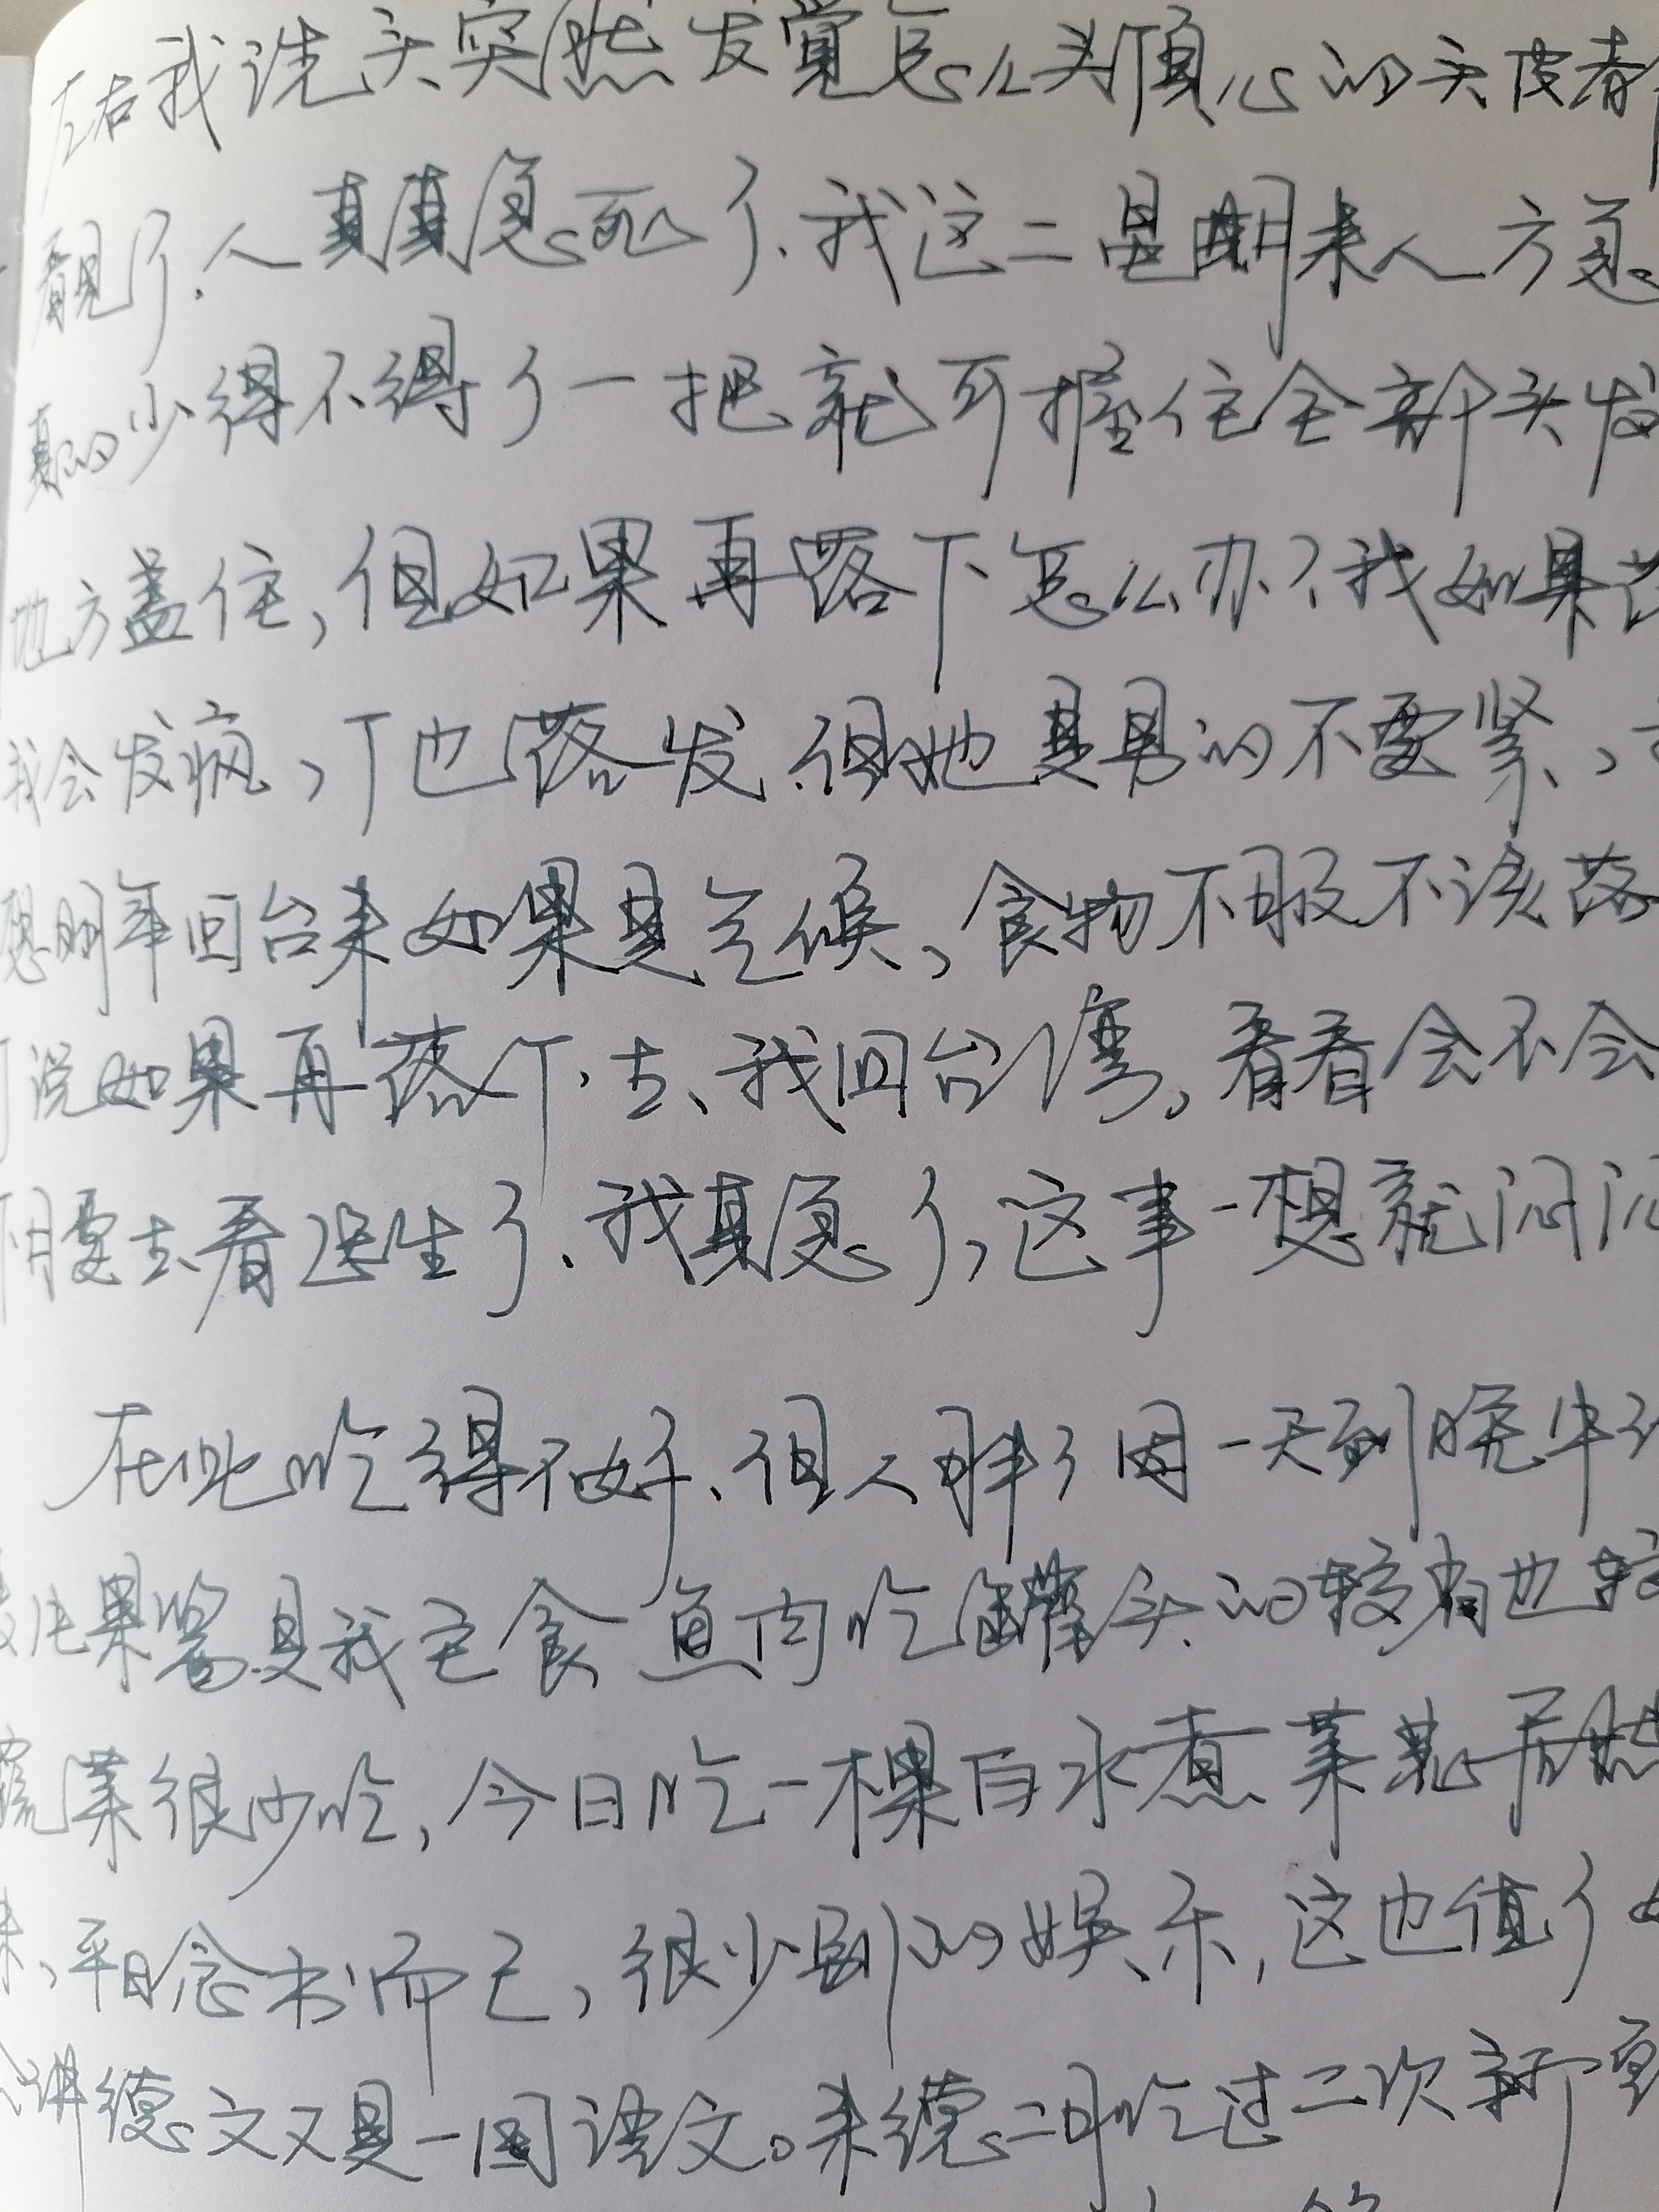 左右我洗头突然发觉怎么头顶心的头皮都
看见了.人真真急死了.我这二星期来人方急
真的少得不得了一把就可握住全部头发
地方盖住,但如果再落下怎么办?我如果
我会发疯,J也落发.但他是男的不要紧,
愿明年回台来如果是气候、食物不服不该落
J说如果再落下去、我回台湾。看看会不会
要去看医生了.我真急了,这事一想就闷
在此吃得不好、但人胖了因一天到晚牛
果酱是我主食 鱼肉吃罐头的较有也较
蔬菜很少吃,今日吃一棵白水煮菜花居然
来,平日念书而已,很少别的娱乐,这也值了
讲德文又是一国语文。来德二月吃过二次新